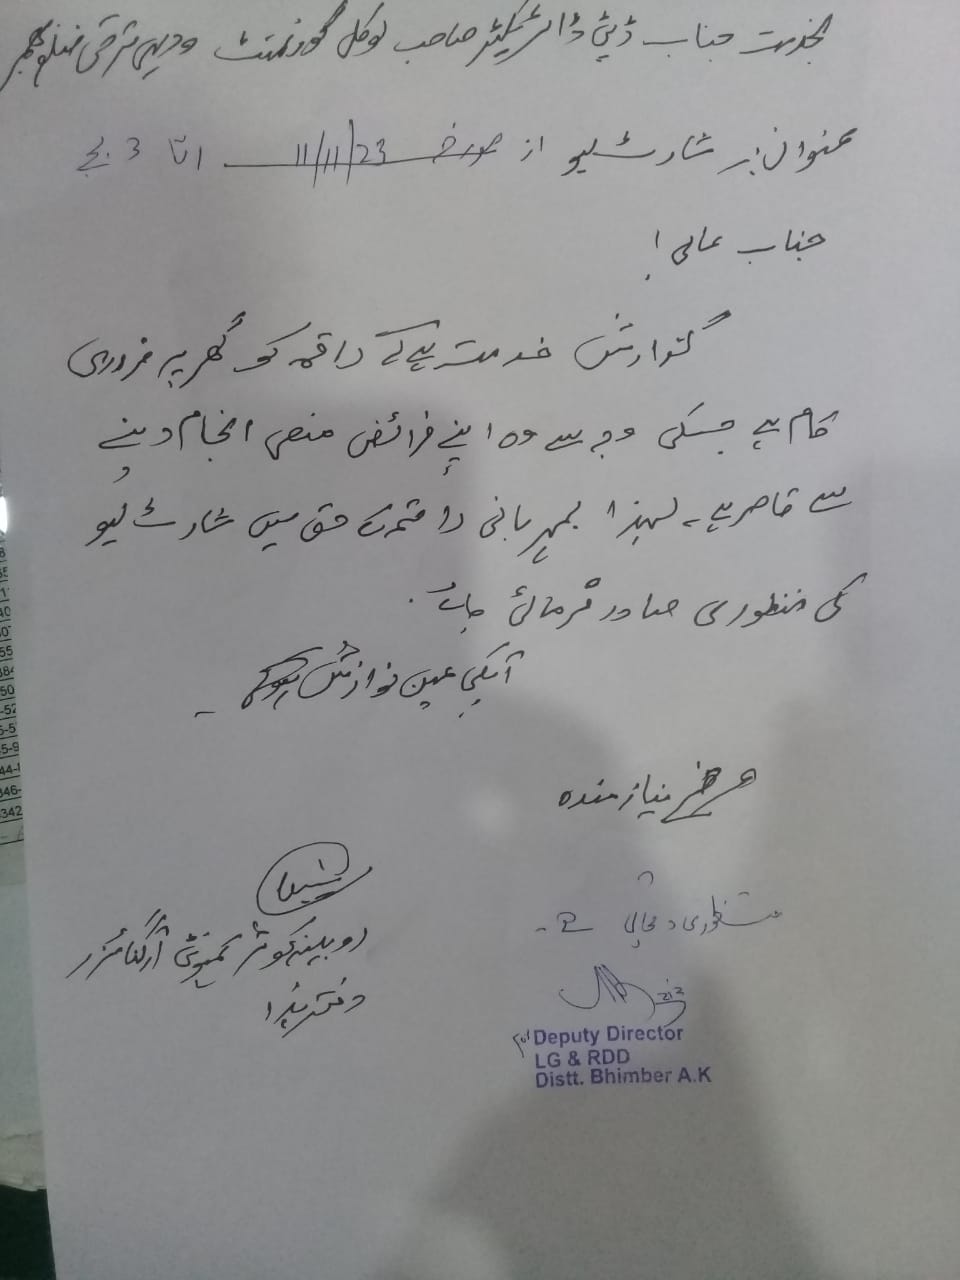 بخدمت جناب ڈپٹی ڈائریکٹر صاحب لوکل گورنمنٹ و دیہی ترقی ضلع بھمبر
عنوان:۔ شارٹ لیو از مورخہ 11/11/23 1 تا 3 بجے
جناب عالی!
گزارش خدمت ہے کے راقمہ کو گھر پہ ضروری
کام ہے جسکی وجہ سے وہ اپنے فرائض منصبی انجام دینے
سے قاصر ہے۔ لہذا بمہربانی راقمہ کے حق میں شارٹ لیو
کی منظوری صادر فرمائی جائے۔
آپکی عین نوازش ہوگی۔
نیازمندہ
روبینہ کوثر کمیونٹی آرگنائزر
دفتر ہذا
منظوری دی جاتی ہے۔
for Deputy Director
LG & RDD
Distt. Bhimber A.K